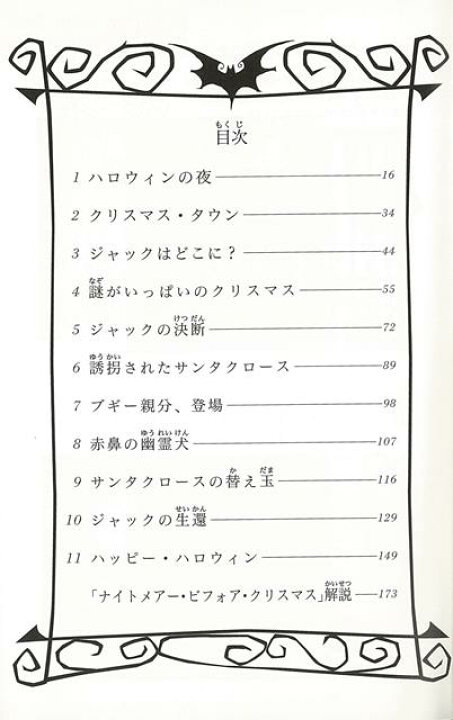 もくじ
目次
1 ハロウィンの夜 16
2 クリスマス・タウン 34
3 ジャックはどこに? 44
なぞ
4 謎がいっぱいのクリスマス 55
けつだん
5 ジャックの決断 72
ゆうかい
6 誘拐されたサンタクロース 89
7 ブギー親分、登場 98
ゆうれいけん
8 赤鼻の幽霊犬 107
か だま
9 サンタクロースの替え玉 116
せいかん
10 ジャックの生還 129
11 ハッピー・ハロウィン 149
かいせつ
「ナイトメアー・ビフォア・クリスマス」解説 173